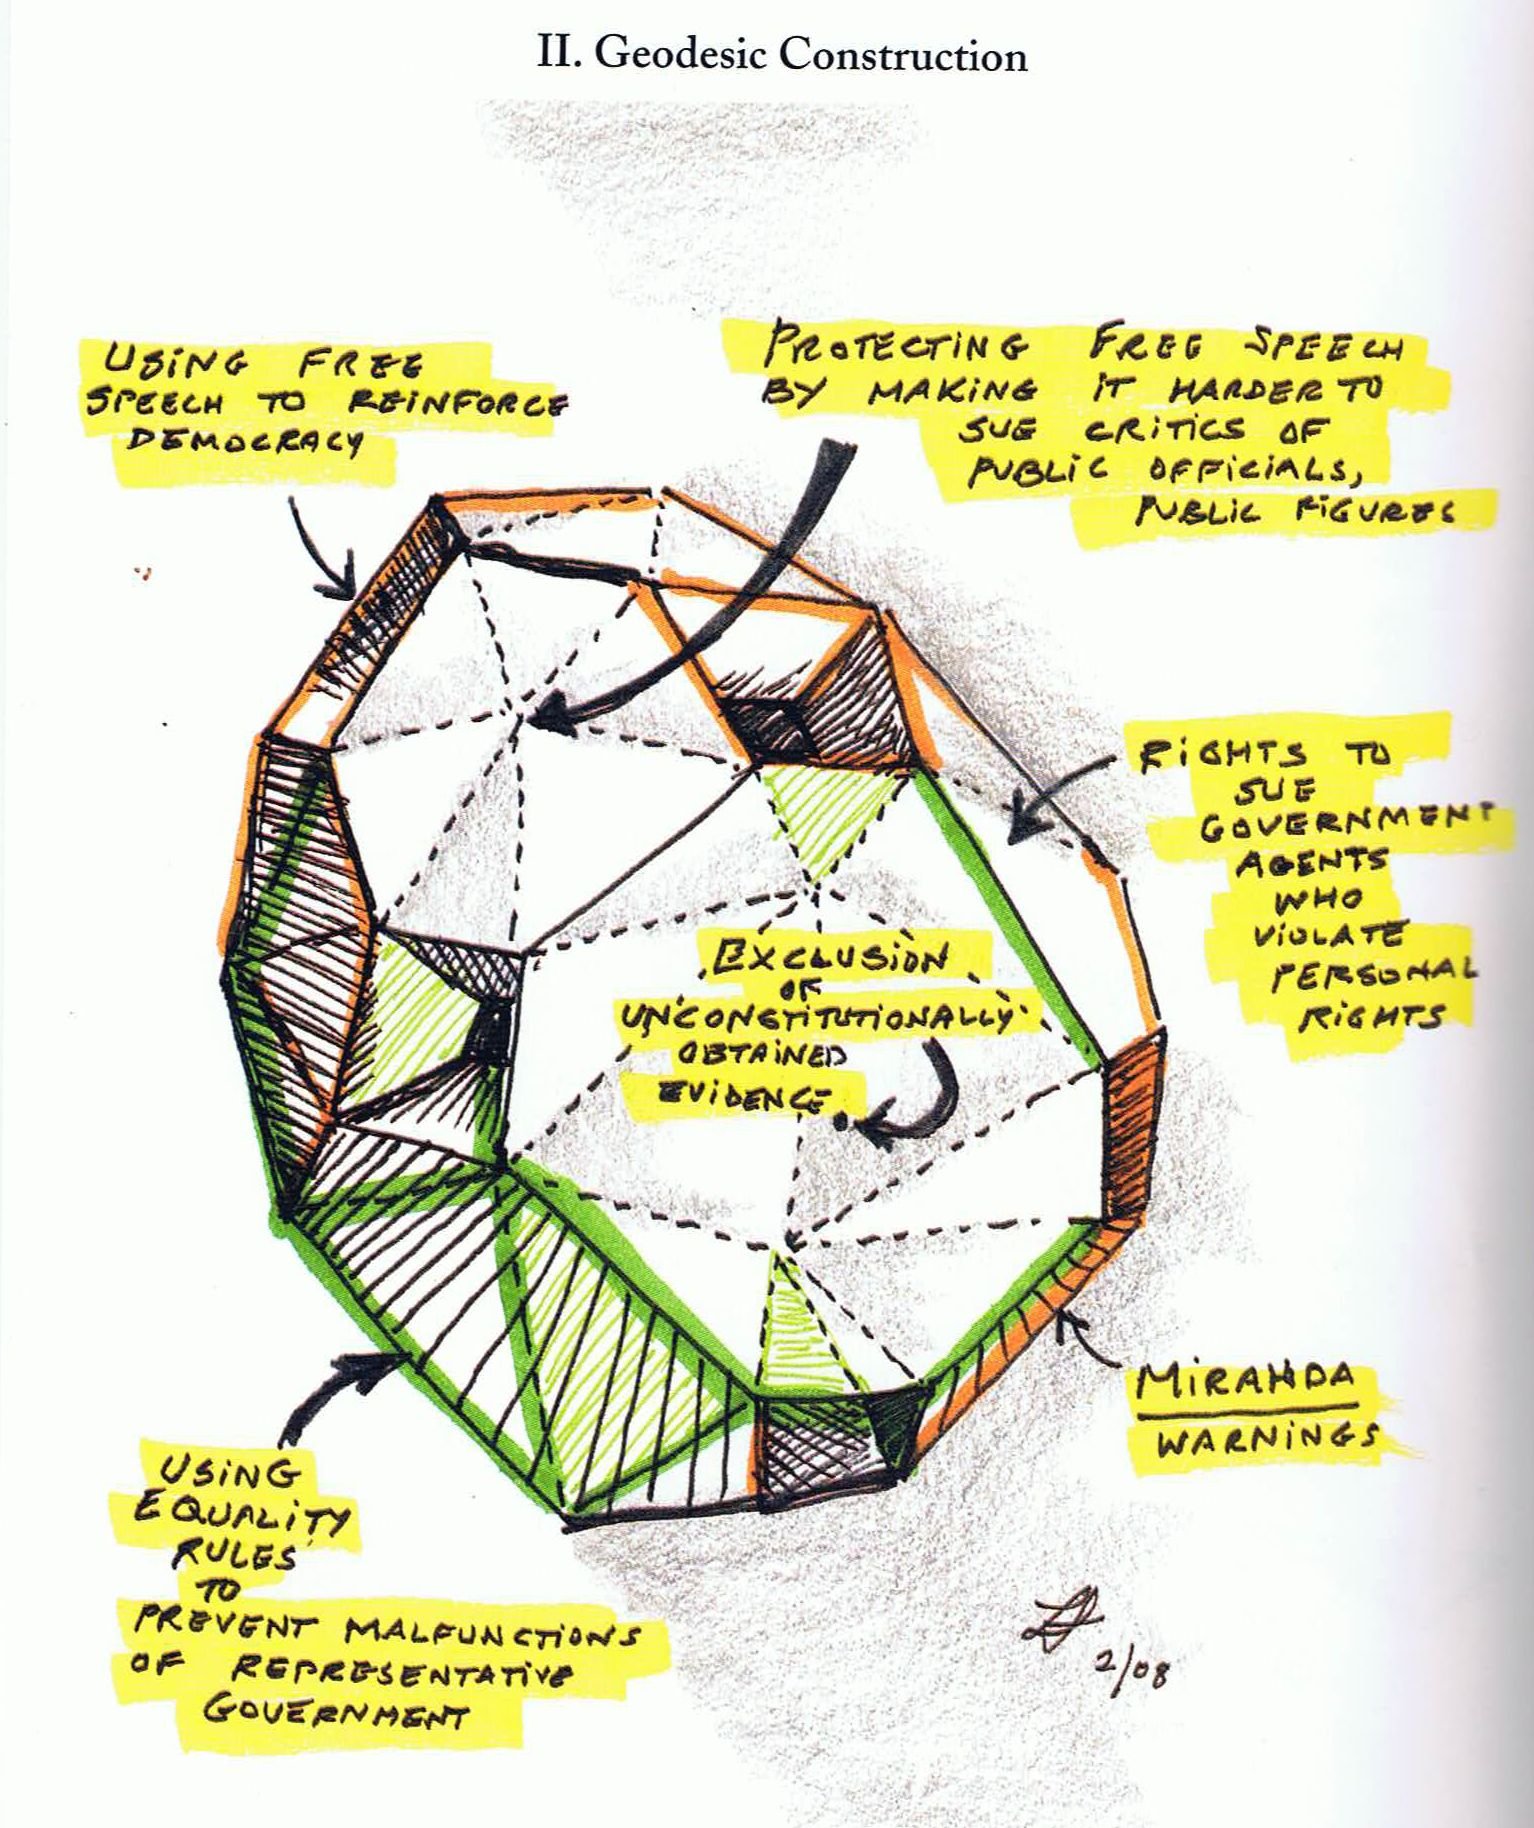 II. Geodesic Construction
USING FREE
SPEECH TO REINFORCE
DEMOCRACY
PROTECTING FREE SPEECH
BY MAKING IT HARDER TO
SUE CRITICS OF
PUBLIC OFFICIALS,
PUBLIC FIGURES
RIGHTS TO
SUE
GOVERNMENT
AGENTS
WHO
VIOLATE
PERSONAL
RIGHTS
EXCLUSION
OF
UNCONSTITUTIONALLY
OBTAINED
EVIDENCE
MIRANDA
WARNINGS
USING
EQUALITY
RULES
TO
PREVENT MALFUNCTIONS
OF REPRESENTATIVE
GOVERNMENT
2/08